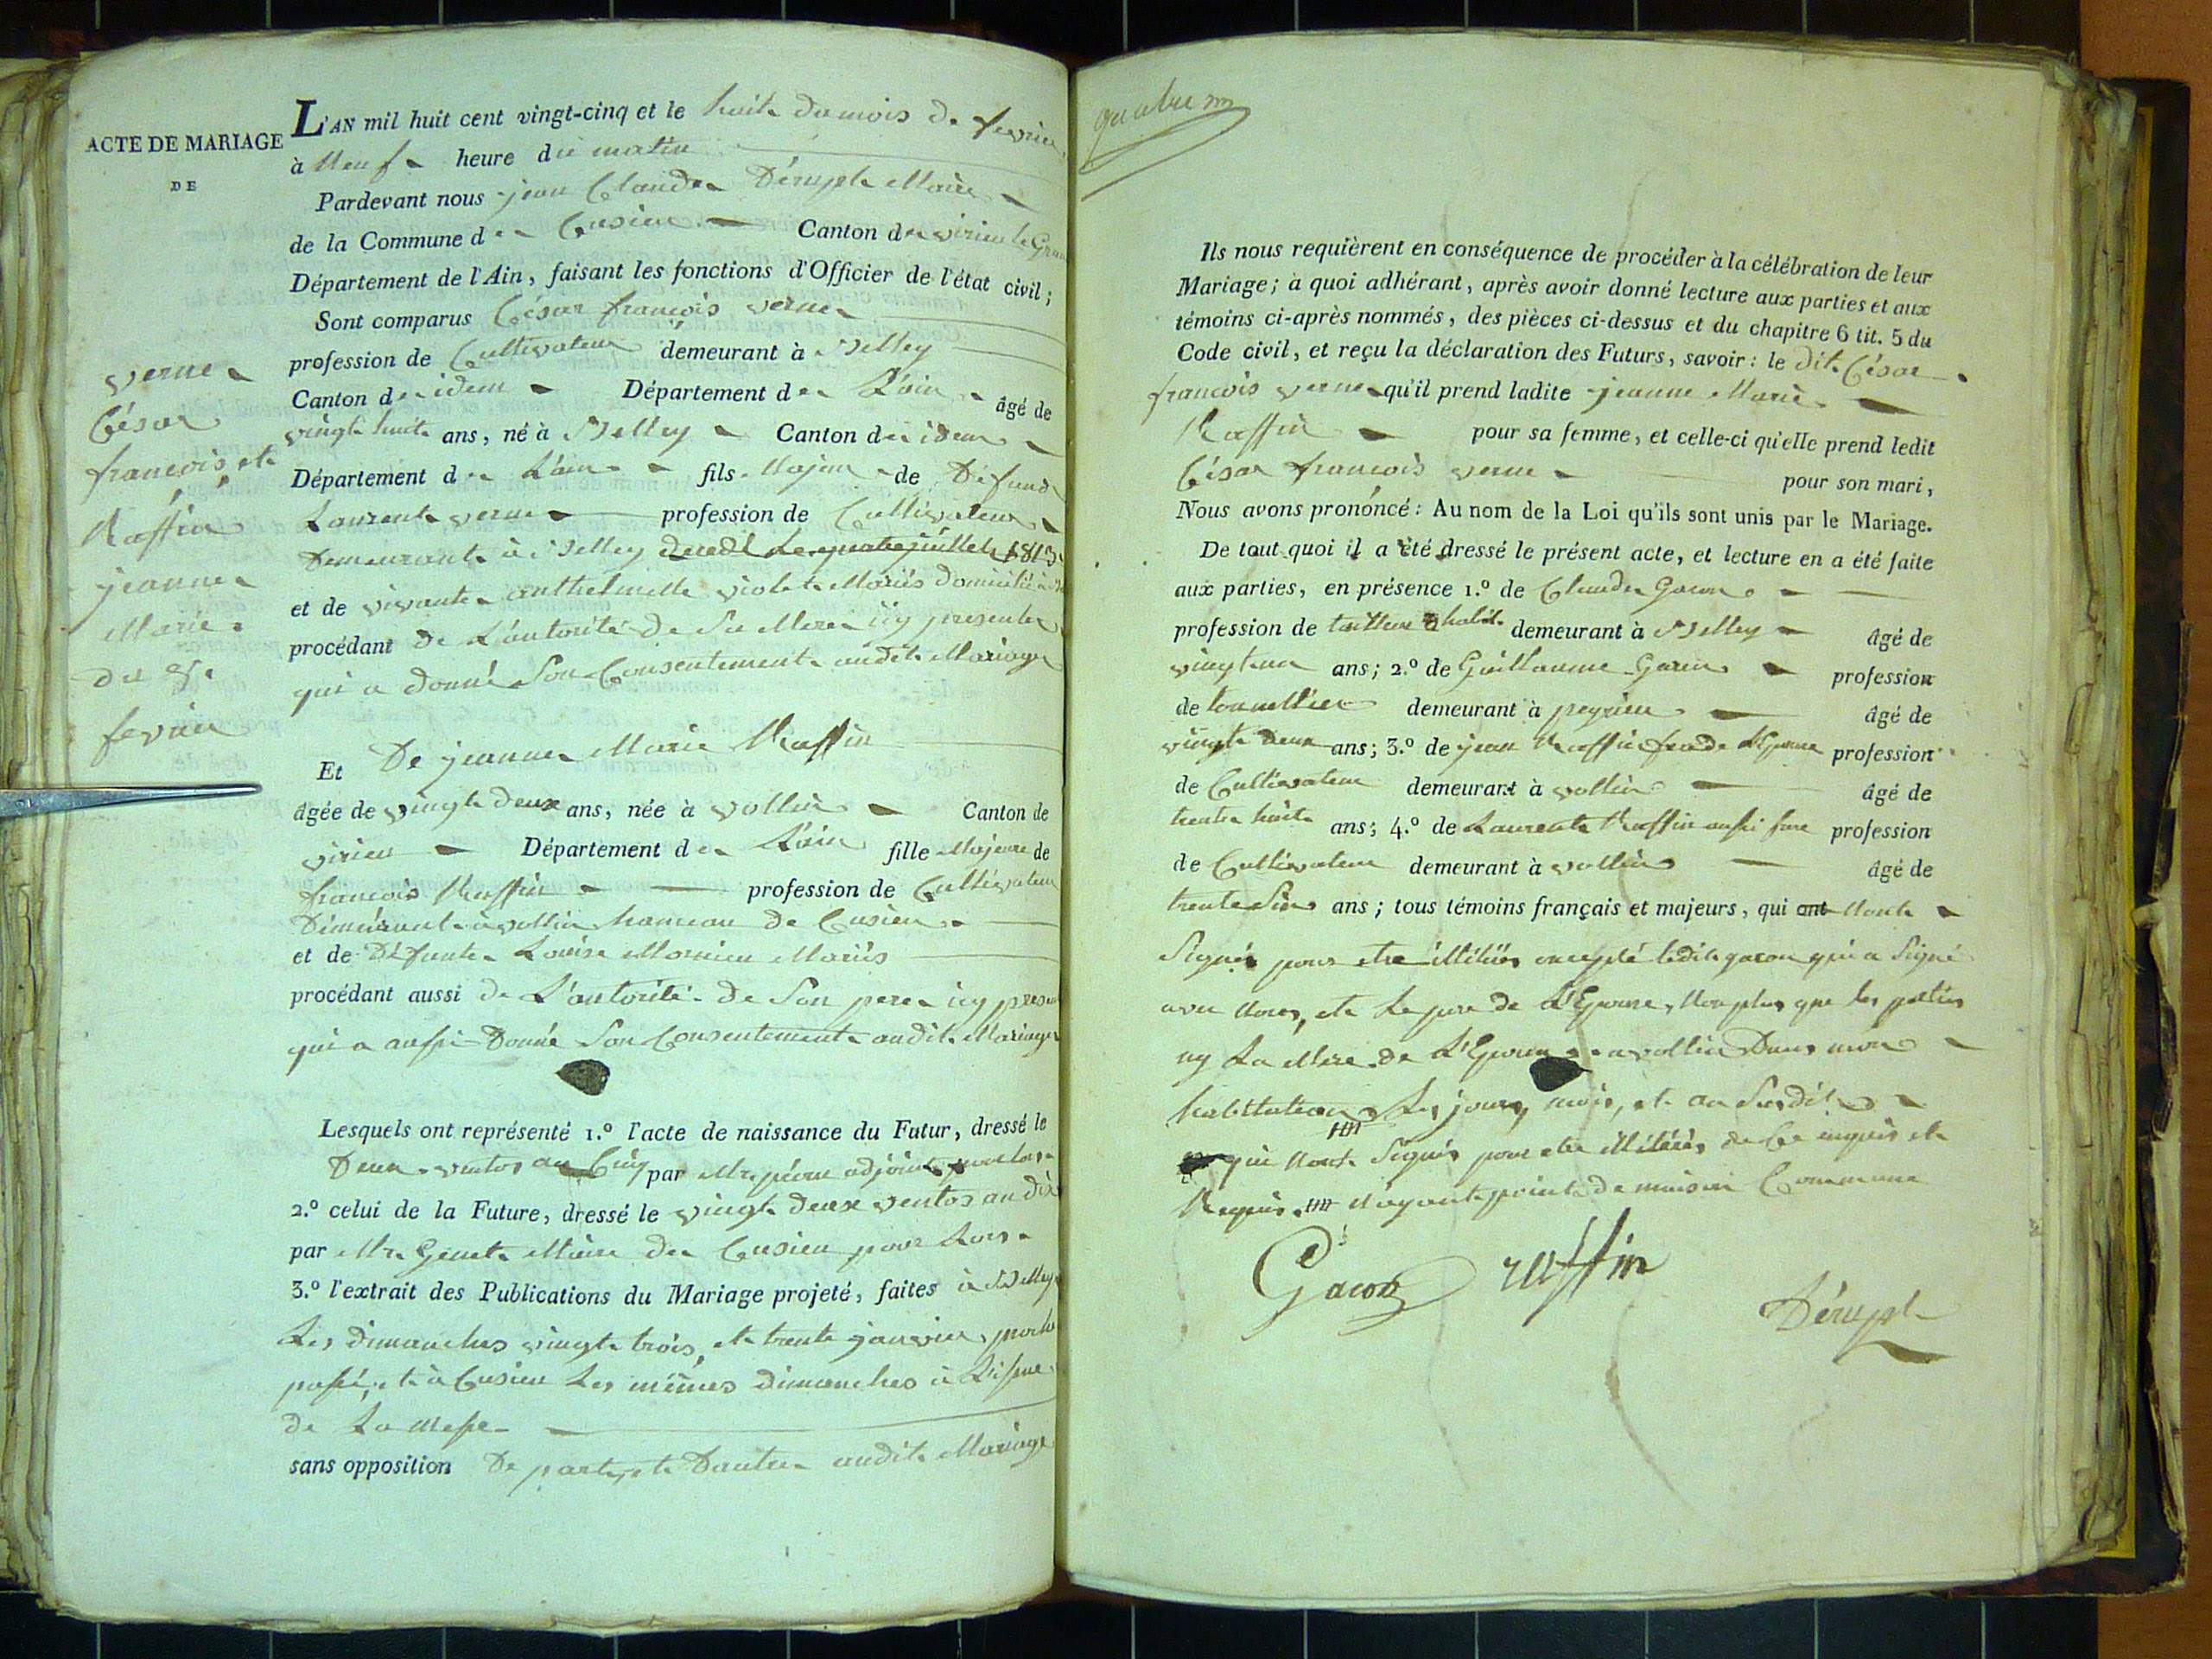 ACTE DE MARIAGE
DE
verne
César
francois, et
Raffin
jeanne
Marie
du 8.
fevrier
L'AN mil huit cent vingt-cinq et le huit du mois de fevrier
à Neuf heure du matin
Pardevant nous jean Claude Dérupt Maire
de la Commune de Cusieu Canton de virieu le Grand
Département de l'Ain, faisant les fonctions d'Officier de l'état civil;
Sont comparus César françois verne
profession de Cultivateur demeurant à Belley
Canton de idem Département de L'ain âgé de
vingt huit ans, né à Belley Canton de idem
Département de L'ain fils Majeur de Défunt
Laurent verne profession de Cultivateur
Demeurant à Belley décédé Le quatre juillet 1813
et de vivante anthelmette violet Mariés domicilié
procédant de L'autorité de Sa Mere icy presente
qui a donné Son Consentement audit Mariage
Et De jeanne Marie Raffin
âgée de vingt deux ans, née à vollin Canton de
virieu Département de L'ain fille Majeure de
francois Raffin profession de Cultivateur
Démeurant à vollin hameau de Cusieu
et de Défunte Louise Mornieu Mariés
procédant aussi de L'autorité de Son pere icy present
qui a aussi Donné Son Consentement audit Mariage
Lesquels ont représenté 1.º l'acte de naissance du Futur, dressé le
Deux ventos an Cinq par Mr. adjoint pour lors
2.º celui de la Future, dressé le vingt deux ventos an dix
par Mr. Genet Maire de Cusieu pour Lors
3.º l'extrait des Publications du Mariage projeté, faites à Belley
Les dimanches vingt trois, et trente janvier proche
passé, et à Cusieu Les mêmes dimanches à L'issue
de La Messe
sans opposition De part, et Dautre audit Mariage
quatre
Ils nous requièrent en conséquence de procéder à la célébration de leur
Mariage; à quoi adhérant, après avoir donné lecture aux parties et aux
témoins ci-après nommés, des pièces ci-dessus et du chapitre 6 tit. 5 du
Code civil, et reçu la déclaration des Futurs, savoir: le dit César
francois verne qu'il prend ladite jeanne Marie
Raffin pour sa femme, et celle-ci qu'elle prend ledit
César francois verne pour son mari,
Nous avons prononcé: Au nom de la Loi qu'ils sont unis par le Mariage.
De tout quoi il a été dressé le présent acte, et lecture en a été faite
aux parties, en présence 1.º de Claude Gacon
profession de tailleur d'habit demeurant à Belley âgé de
vingt un ans; 2.º de Guillaume Garin profession
de tonnellier demeurant à peyrieu âgé de
vingt deux ans; 3.º de jean Raffin frere de L'Epouse profession
de Cultivateur demeurant à vollin âgé de
trente huit ans; 4.º de Laurent Raffin aussi frere profession
de Cultivateur demeurant à vollin âgé de
trente Six ans; tous témoins français et majeurs, qui ont Nont
Signés pour etre illitérés excepté ledit gacon qui a Signé
avec Nous, et Le pere de L'Epouse, Non plus que les parties
ny La Mere de L'Epoux à vollin Dans mon
habitation Les jour, mois, et an Susdit
qui Nont Signés pour etre illitérés de Ce enquis et
Requis. N'ayant point de maison Commune
Gacon raffin
Dérupt